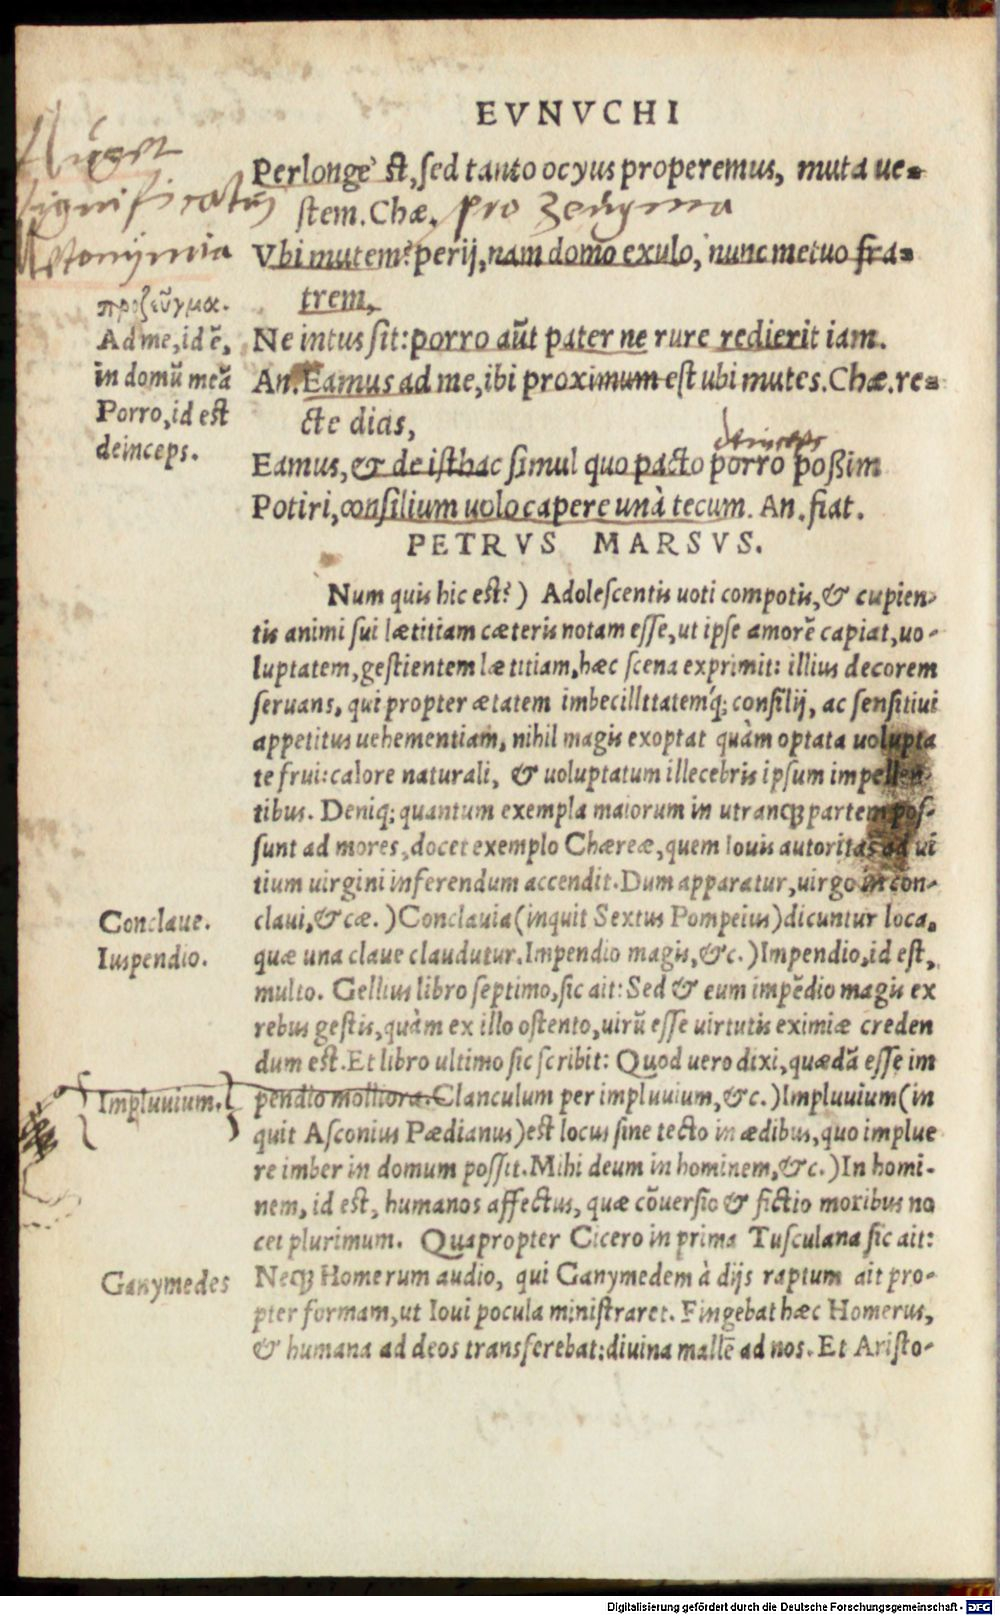 EVNVCHI
Perlonge st, sed tanto ocyus properemus, muta ue-
stem. Chæ. pro zeugma
Vbi mutem? perij, nam domo exulo, nunc metuo fra-
trem,
Ne intus sit: porro aũt pater ne rure redierit iam.
An. Eamus ad me, ibi proximum est ubi mutes. Chæ. re-
cte dicis,
deinceps
Eamus, & de isthac simul quo pacto porro poßim
Potiri, consilium uolo capere unà tecum. An. fiat.
Auget
significatũ
Metonymia
προζεῦγμα.
Ad me, id ē,
in domũ meã
Porro, id est
deinceps.
PETRVS MARSVS.
Num quis hic est?) Adolescentis uoti compotis, & cupien-
tis animi sui lætitiam cæteris notam esse, ut ipse amorē capiat, uo-
luptatem, gestientem lætitiam, hæc scena exprimit: illius decorem
seruans, qui propter ætatem imbecillttatemq́; consilij, ac sensitiui
appetitus uehementiam, nihil magis exoptat quàm optata uolupta
te frui: calore naturali, & uoluptatum illecebris ipsum impellen-
tibus. Deniq; quantum exempla maiorum in utranq; partem pos-
sunt ad mores, docet exemplo Chæreæ, quem Iouis autoritas ad ui
tium uirgini inferendum accendit. Dum apparatur, uirgo in con-
claui, & cæ.) Conclauia (inquit Sextus Pompeius) dicuntur loca,
quæ una claue claudutur. Impendio magis, &c.) Impendio, id est,
multo. Gellius libro septimo, sic ait: Sed & eum impēdio magis ex
rebus gestis, quàm ex illo ostento, uirũ esse uirtutis eximiæ creden
dum est. Et libro ultimo sic scribit: Quod uero dixi, quædã esse im
pendio molliora. Clanculum per impluuium, &c.) Impluuium (in
quit Asconius Pædianus) est locus sine tecto in ædibus, quo implue
re imber in domum possit. Mihi deum in hominem, &c.) In homi-
nem, id est, humanos affectus, quæ cōuersio & fictio moribus no
cet plurimum. Quapropter Cicero in prima Tusculana sic ait:
Neq; Homerum audio, qui Ganymedem à dijs raptum ait pro-
pter formam, ut Ioui pocula ministraret. Fingebat hæc Homerus,
& humana ad deos transferebat: diuina mallē ad nos. Et Aristo-
Conclaue.
Iuspendio.
Impluuium.
Ganymedes
Digitalisierung gefördert durch die Deutsche Forschungsgemeinschaft - DFG